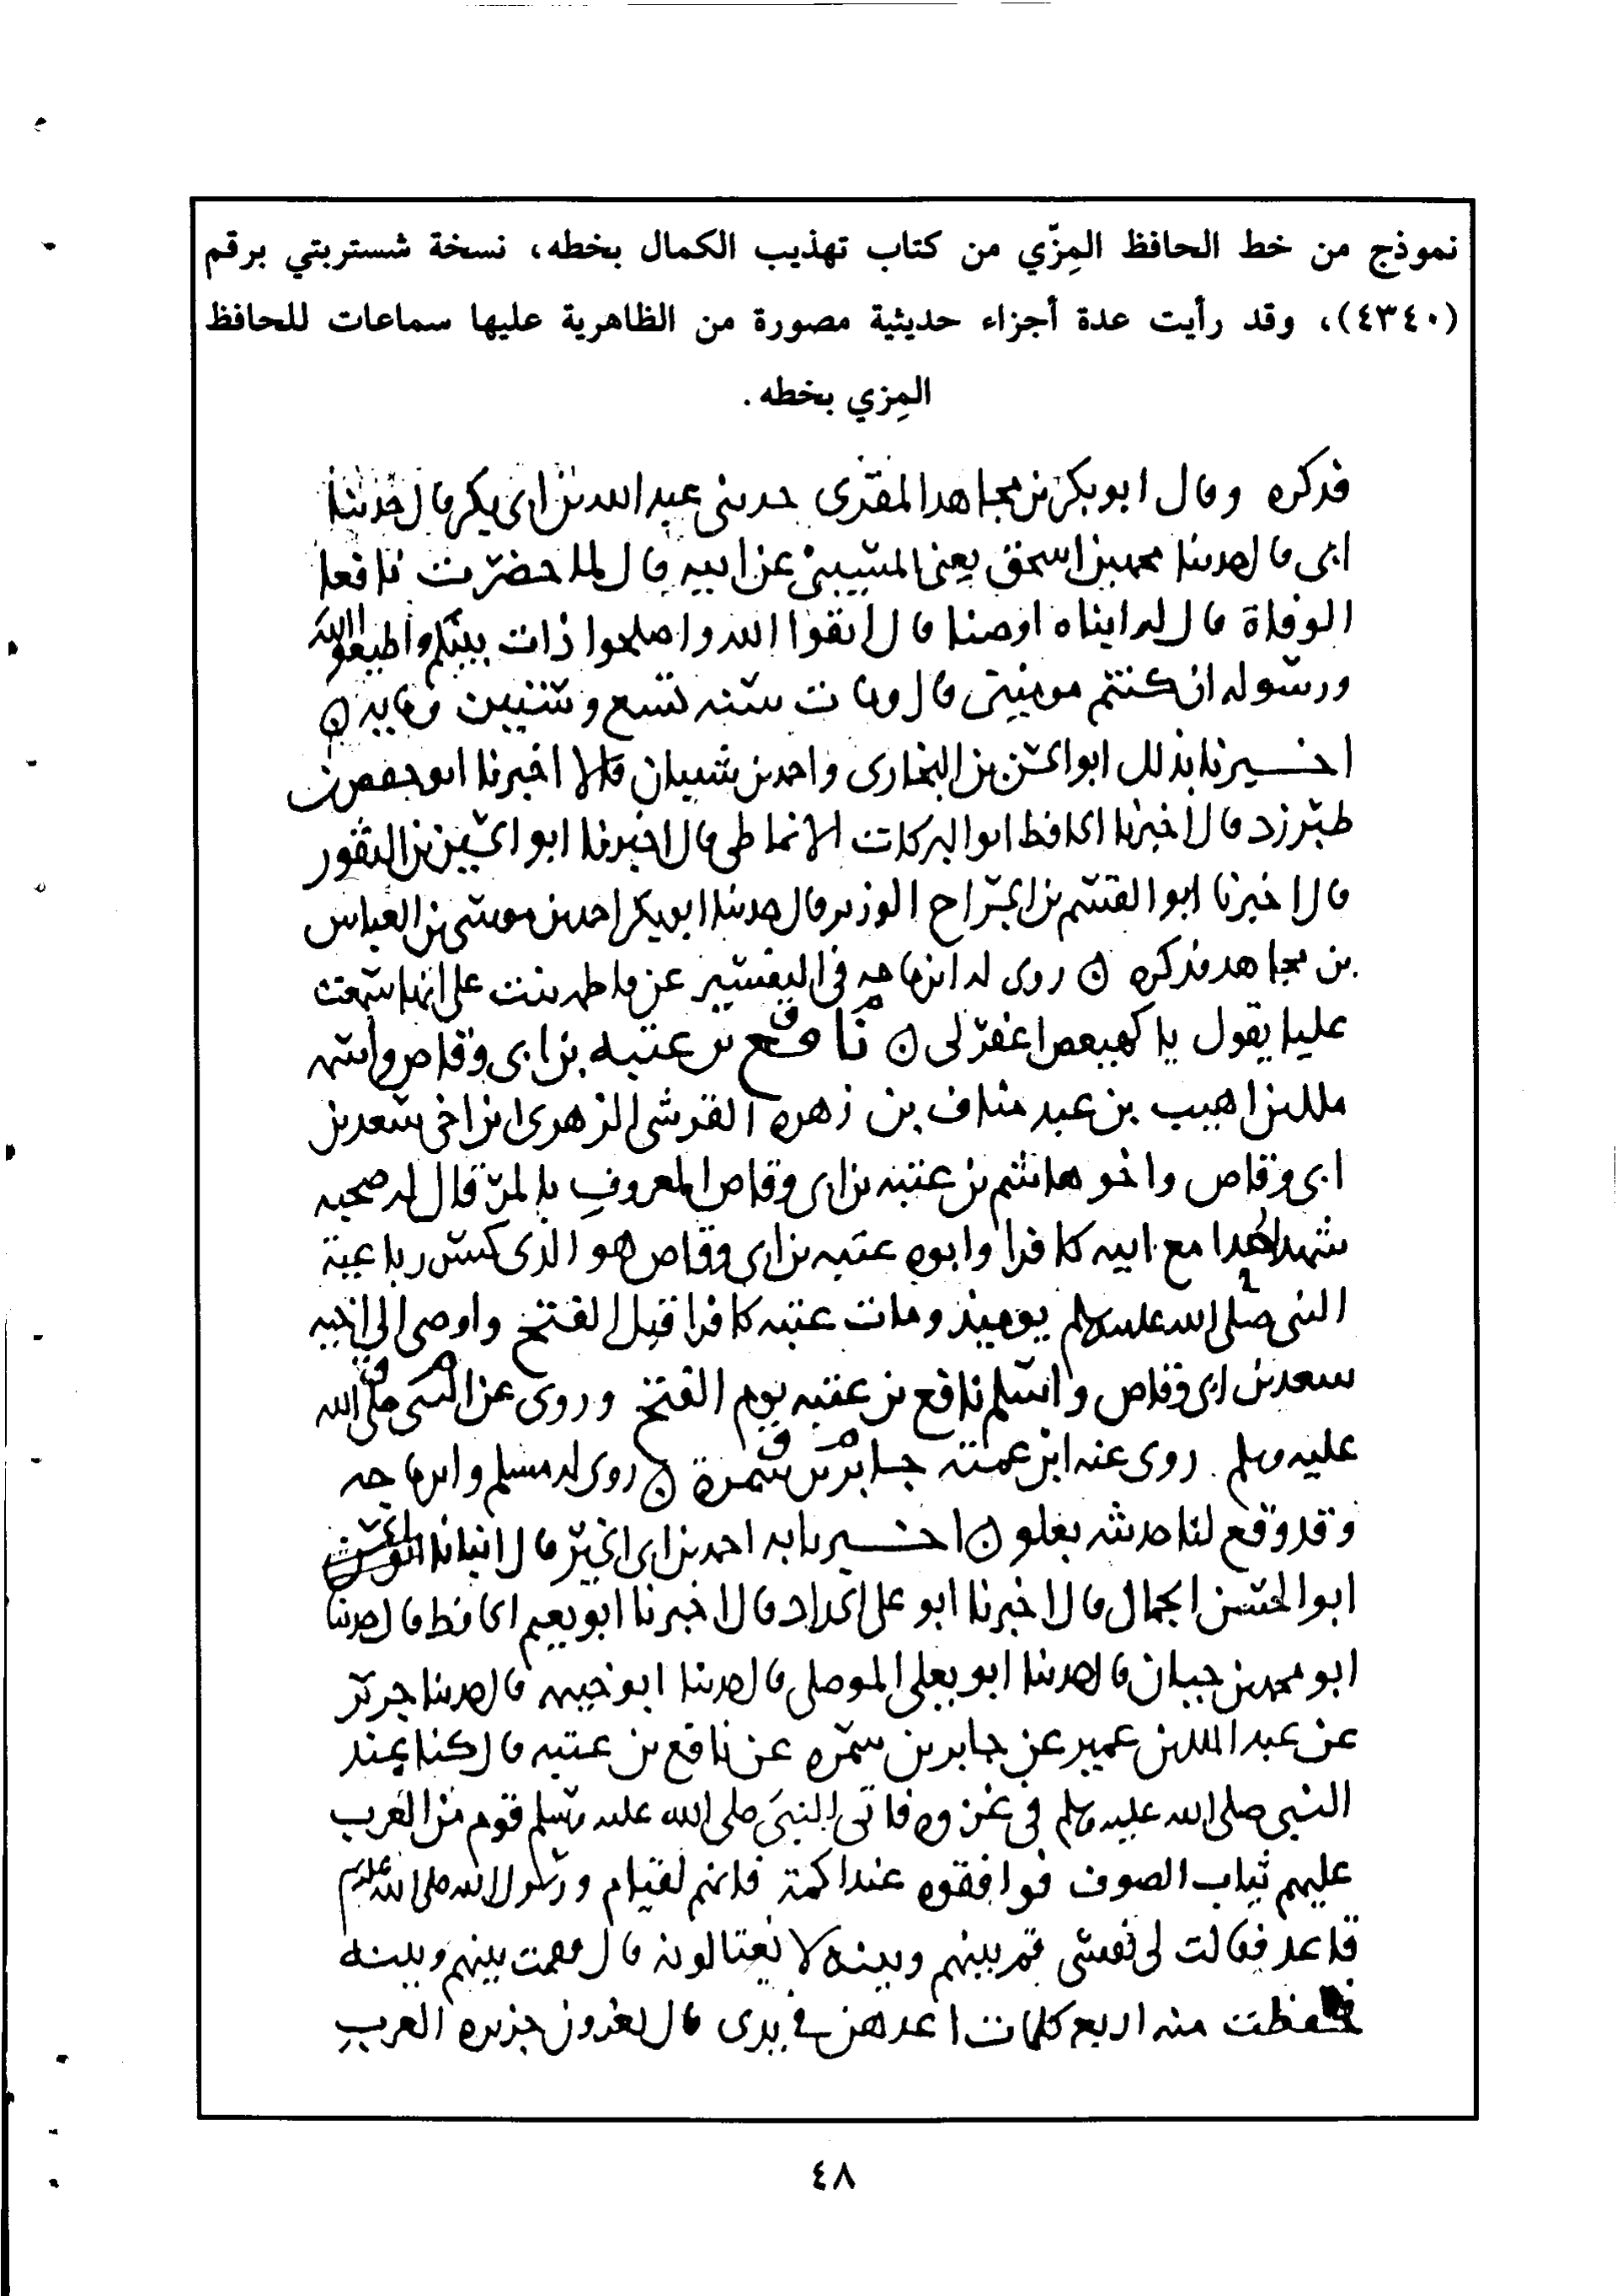 نموذج من خط الحافظ المِزّي من كتاب تهذيب الكمال بخطه، نسخة شستربتي برقم
(٤٣٤٠)، وقد رأيت عدة أجزاء حديثية مصورة من الظاهرية عليها سماعات للحافظ
المِزي بخطه.
فذكره وقال ابو بكر بن مجاهد المقرى حدثنى عبد الله بن ابى بكر قال حدثنا
ابى قال حدثنا محمد بن اسحق يعنى المسيبى عن ابيه قال لما حضرت نافعا
الوفاة قال له ابناه اوصنا قال اتقوا الله واصلحوا ذات بينكم واطيعوا الله
ورسوله ان كنتم مومنين قال ومات سنه تسع وستين ومايه ن
اخبرنا بذلك ابو الحسن بن البخارى واحمد بن شيبان قالا اخبرنا ابو حفص بن
طبرزد قال اخبرنا الحافظ ابو البركات الانماطى قال اخبرنا ابو الحسين بن النقور
قال اخبرنا ابو القسم بن الجراح الوزير قال حدثنا ابو بكر احمد بن موسى بن العباس
بن مجاهد فذكره ن روى له ابن ماجه فى التفسير عن فاطمه بنت على انها سمعت
عليا يقول يا كهيعص اغفر لى ن م ق نافع بن عتبه بن ابى وقاص واسمه
ملك بن اهيب بن عبد مناف بن زهره القرشى الزهرى ابن اخى سعد بن
ابى وقاص واخو هاشم بن عتبه بن ابى وقاص المعروف بالمرقال له صحبه
شهد احدا مع ابيه كافرا وابوه عتبه بن ابى وقاص هو الذى كسر رباعية
النبى صلى الله عليه وسلم يوميذ ومات عتبه كافرا قبل الفتح واوصى الى اخيه
سعد بن ابى وقاص واسلم نافع بن عتبه يوم الفتح وروى عن النبى صلى الله م ق
عليه وسلم روى عنه ابن عمته جابر بن سمرة م ق ن روى له مسلم وابن ماجه
وقد وقع لنا حديثه بعلو ن اخبرنا به احمد بن ابى الخير قال انبانا
ابو الحسن الجمال قال اخبرنا ابو على الحداد قال اخبرنا ابو نعيم الحافظ قال حدثنا
ابو محمد بن حيان قال حدثنا ابو يعلى الموصلى قال حدثنا ابو خيثمه قال حدثنا جرير
عن عبد الملك بن عمير عن جابر بن سمره عن نافع بن عتبه قال كنا عند
النبى صلى الله عليه وسلم فى غزوه فاتى النبى صلى الله عليه وسلم قوم من العرب
عليهم ثياب الصوف فوافقوه عند اكمة فانهم لقيام ورسول الله صلى الله عليه وسلم
قاعد فقالت لى نفسى قم بينهم وبينه لا يغتالونه قال فقمت بينهم وبينه
فحفظت منه اربع كلمات اعدهن فى يدى قال تغزون جزيره العرب
٤٨